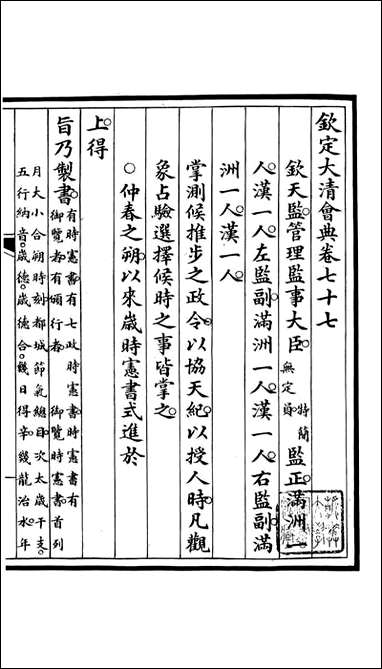 欽定大清會典卷七十七
欽天監管理監事大臣特簡無定員監正滿洲一
人漢一人左監副滿洲一人漢一人右監副滿
洲一人漢一人
掌測候推步之政令以協天紀以授人時凡觀
象占驗選擇候時之事皆掌之
○仲春之朔以來歲時憲書式進於
上得
旨乃製書有時憲書有七政時憲書時憲書有
御覽者有頒行者御覽時憲書首列
月大小合朔時刻都城節氣總目次太歲干支
五行納音歲德歲德合幾日得辛幾龍治水年